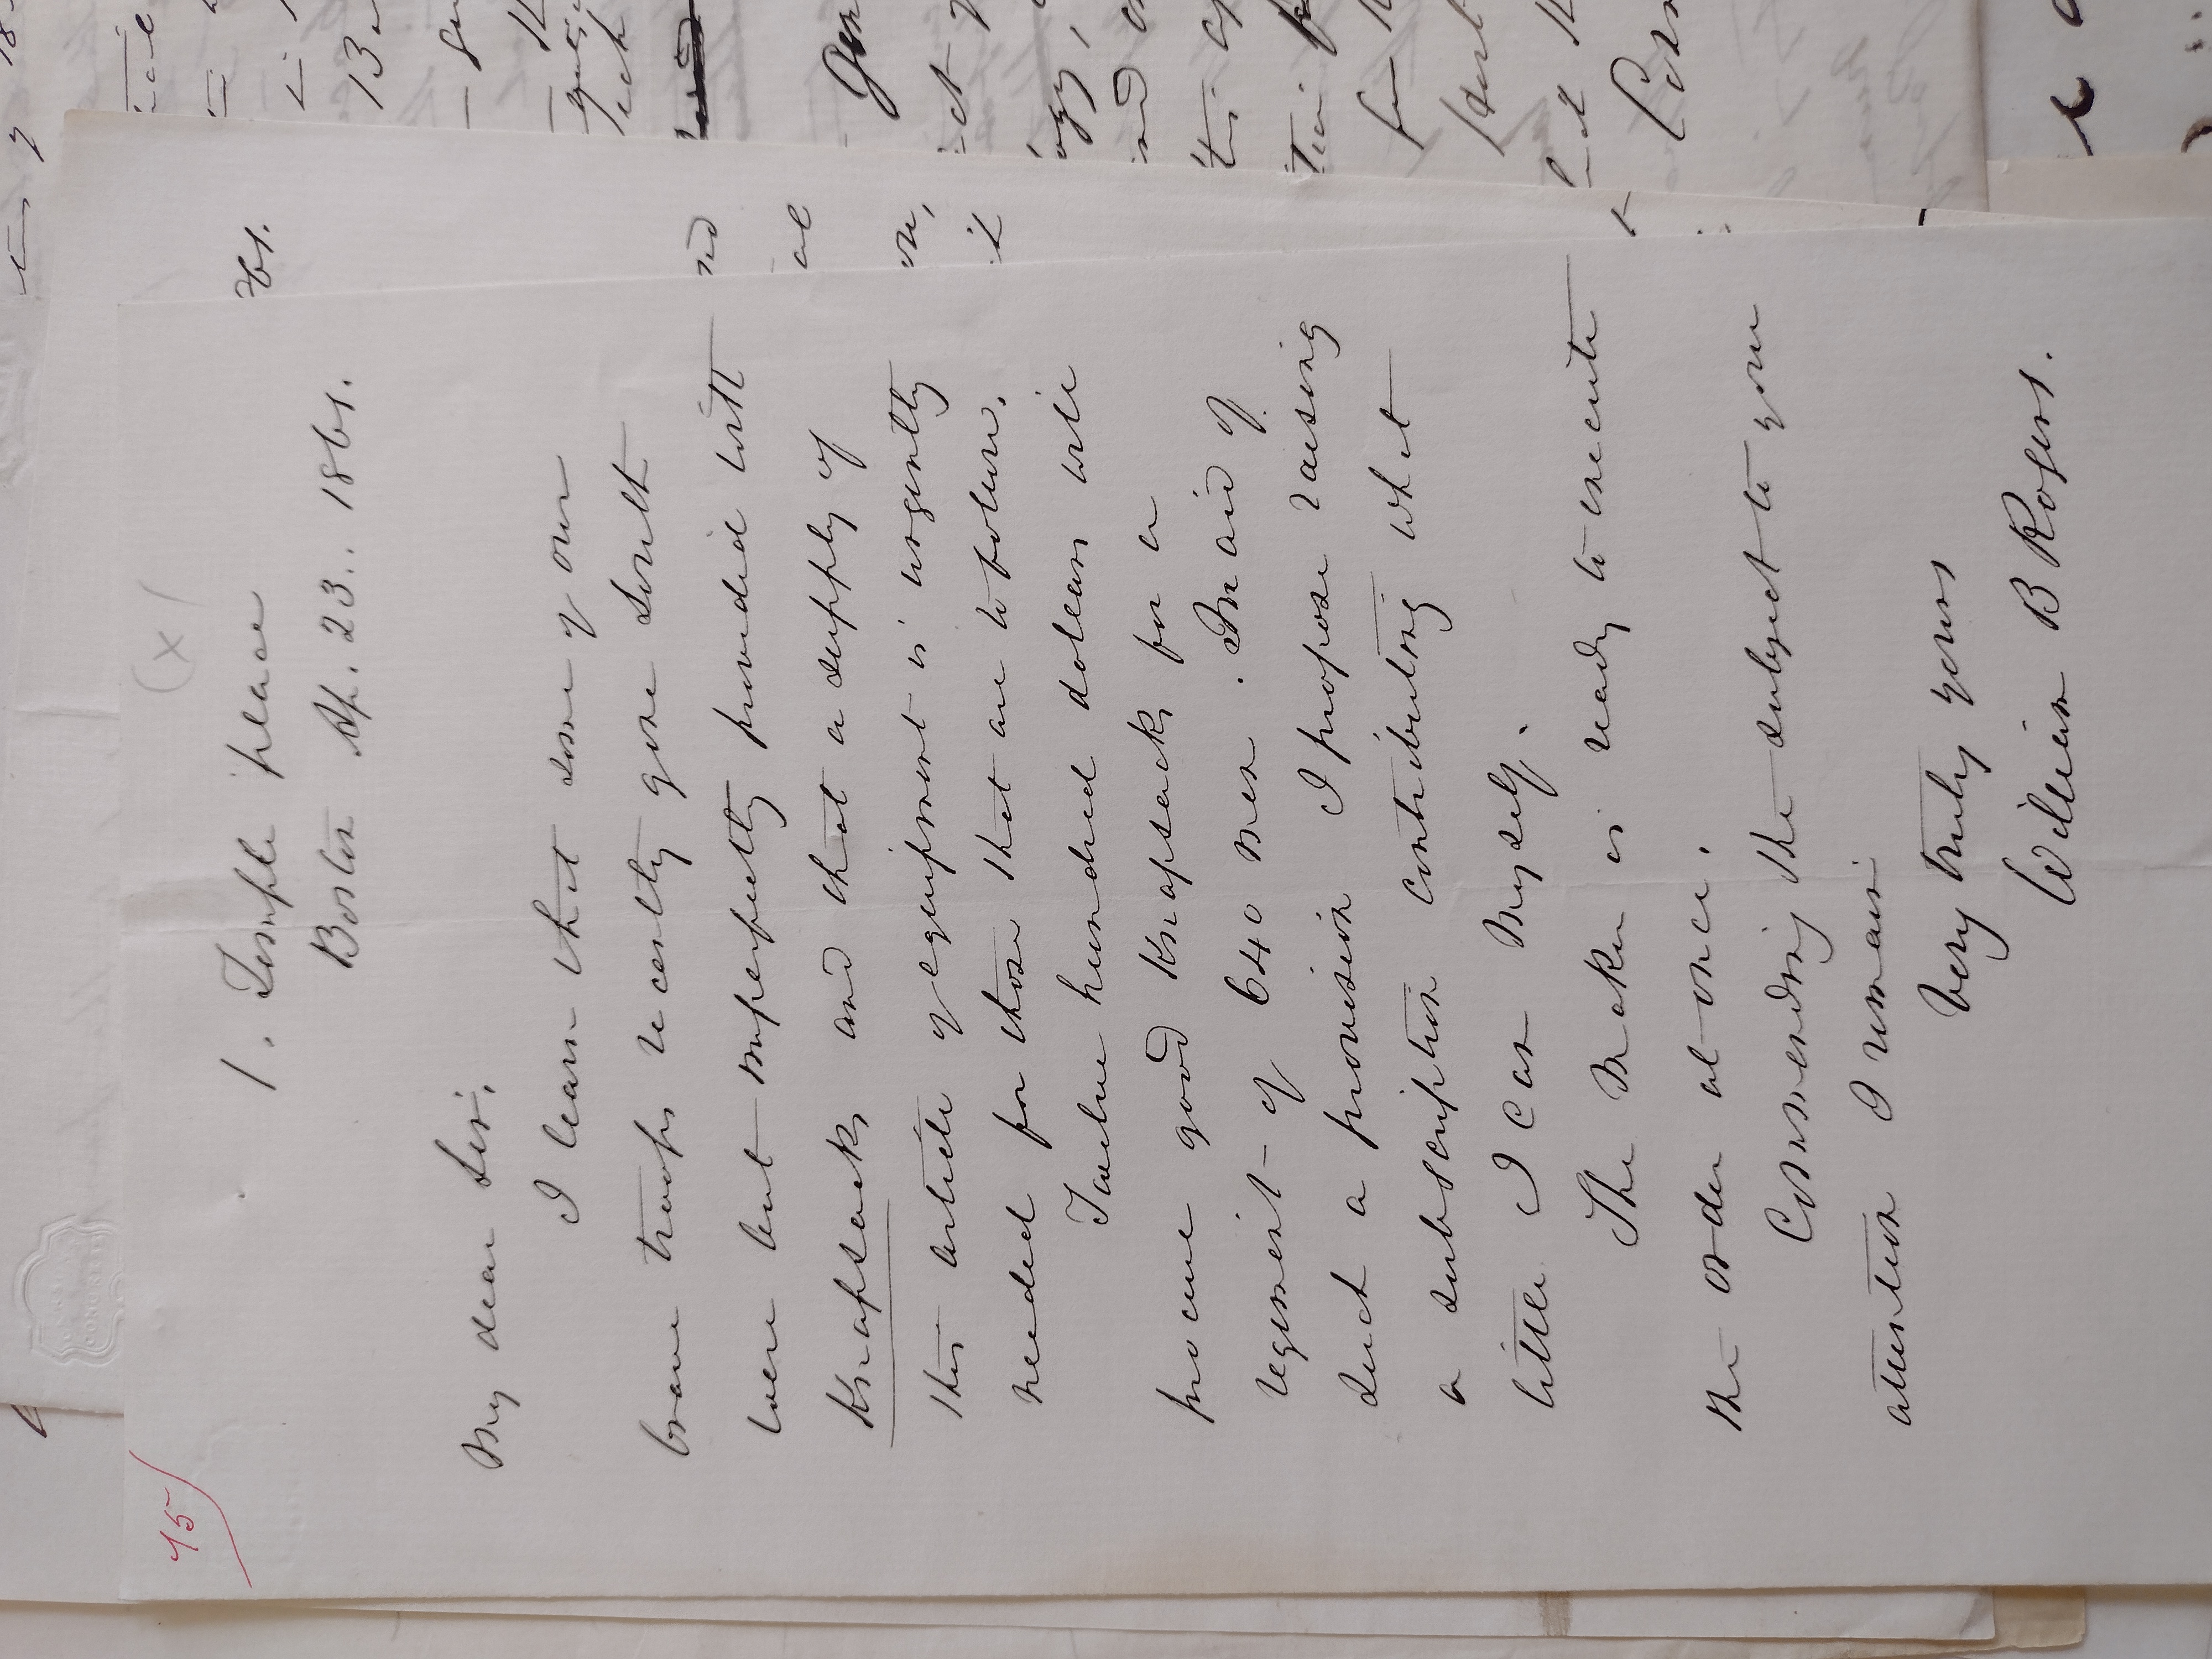 45
(x)
1. Temple place
Boston Ap. 23.. 1861.
My dear Sir,
I learn that some of our
brave troops recently gone South
were but imperfectly provided with
Knapsacks and that a supply of
this article of equipment is urgently
needed for those that are to follow.
Twelve hundred dollars will
procure good Knapsacks for a
regiment of 640 men. In aid of
such a provision I propose raising
a subscription contributing what
little I can myself.
The maker is ready to execute
the order at once.
Commending the subject to your
attention I remain
Very truly yours
William B Rogers.